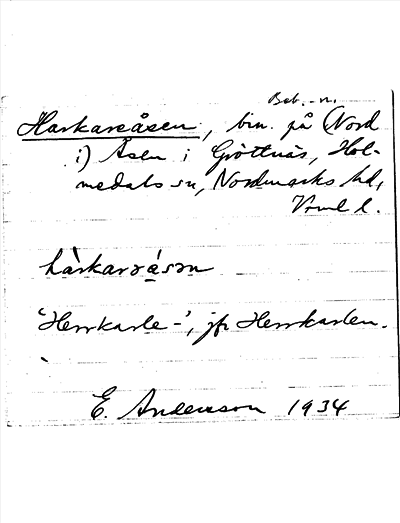 Beb.-n.
Harkareåsen, bin. på (Nord
i) Åsen i Gröttnäs, Hol-
medals sn, Nordmarks hd,
Vrml l.
hàrkarəåsən
'Herrkarle-', jfr Herrkarlen.
E. Andersson 1934